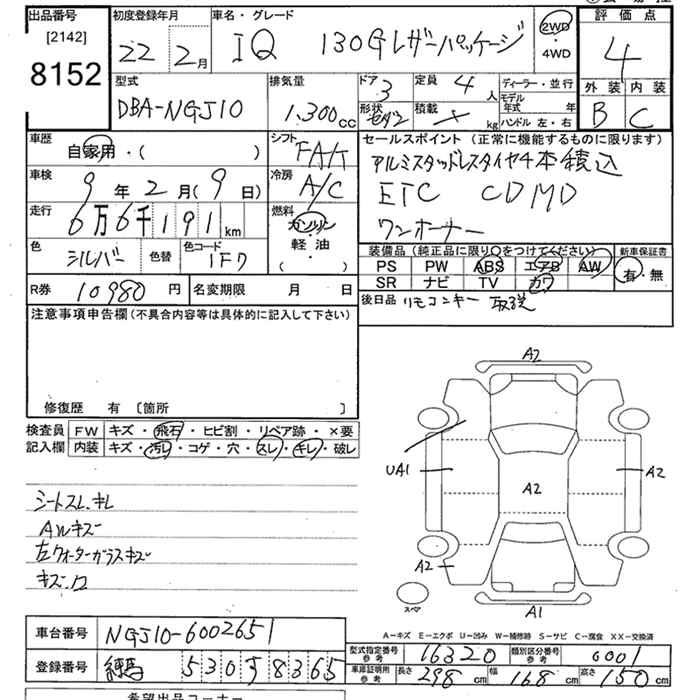 出品番号 [2142] 8152
初度登録年月 22年 2月
車名・グレード IQ 130Gレザーパッケージ
2WD・4WD
評価点 4
外装 B 内装 C
型式 DBA-NGJ10
排気量 1.300cc
ドア 3 定員 4人
形状 セダン 積載 × kg
ディーラー・並行
モデル年式 年
ハンドル 左・右
車歴 自家用・( )
シフト FAT
車検 9年2月(9日)
冷房 A/C
走行 6万6千191km
燃料 ガソリン 軽油 ( )
色 シルバー 色替 色コード 1F7
セールスポイント (正常に機能するものに限ります)
アルミスタッドレスタイヤ4本積込
ETC CD MD
ワンオーナー
装備品 (純正品に限り○をつけてください)
新車保証書
PS PW ABS エアB AW
SR ナビ TV カワ
有・無
R券 10980円 名変期限 月 日
後日品 リモコンキー 取説
注意事項申告欄(不具合内容等は具体的に記入して下さい)
修復歴 有 〔箇所 〕
検査員 FW キズ・飛石・ヒビ割・リペア跡・×要
記入欄 内装 キズ・汚レ・コゲ・穴・スレ・キレ・破レ
シートスレ.キレ
AWキズ
左クォーターガラスキズ
A2
UA1
A2
A2
A2
A1
スペア
A-キズ E-エクボ U-凹み W-補修跡 S-サビ C-腐食 XX-交換済
車台番号 NGJ10-6002651
登録番号 練馬 530 す 8365
型式指定番号 参考 16320 類別区分番号 参考 0001
車庫証明用 参考 長さ 298cm 幅 168cm 高さ 150cm
希望出品コーナー